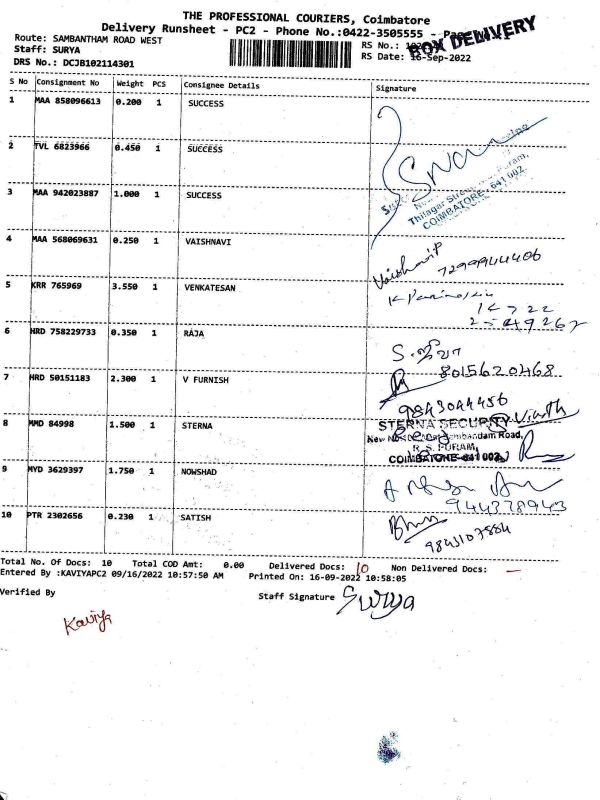 THE PROFESSIONAL COURIERS, Coimbatore
Delivery Runsheet - PC2 - Phone No.:0422-3505555 -
BOX DELIVERY
Route: SAMBANTHAM ROAD WEST
RS No.:
Staff: SURYA
RS Date: 16-Sep-2022
DRS No.: DCJB102114301
S No Consignment No Weight PCS Consignee Details Signature
1 MAA 858096613 0.200 1 SUCCESS
2 TVL 6823966 0.450 1 SUCCESS
3 MAA 942023887 1.000 1 SUCCESS
Thilagar Street
COIMBATORE - 641 002.
4 MAA 568069631 0.250 1 VAISHNAVI
Vaishnavi P
7299944406
5 KRR 765969 3.550 1 VENKATESAN
6 HRD 758229733 0.350 1 RAJA
S. ஜீவா
8015620468
7 HRD 50151183 2.300 1 V FURNISH
9843044456
8 MMD 84998 1.500 1 STERNA
STERNA SECURITY
Road,
R. S. PURAM,
COIMBATORE-641 002
9 MYD 3629397 1.750 1 NOWSHAD
944378943
10 PTR 2302656 0.230 1 SATISH
9843107884
Total No. Of Docs: 10 Total COD Amt: 0.00 Delivered Docs: 10 Non Delivered Docs: -
Entered By :KAVIYAPC2 09/16/2022 10:57:50 AM Printed On: 16-09-2022 10:58:05
Verified By Staff Signature Surya
Kaviya